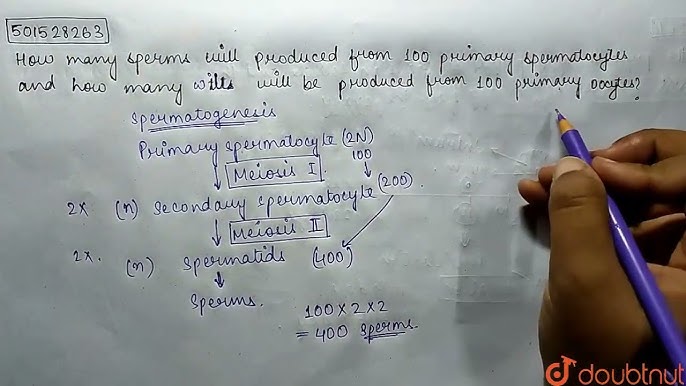 501528263
How many sperms will produced from 100 primary spermatocytes
and how many will be produced from 100 primary oocytes?
Spermatogenesis
Primary spermatocyte (2N)
100
Meiosis I
2x (n) Secondary spermatocyte (200).
Meiosis II
2x. (n) Spermatids (400)
Sperms.
100 x 2 x 2
= 400 Sperms.
doubtnut